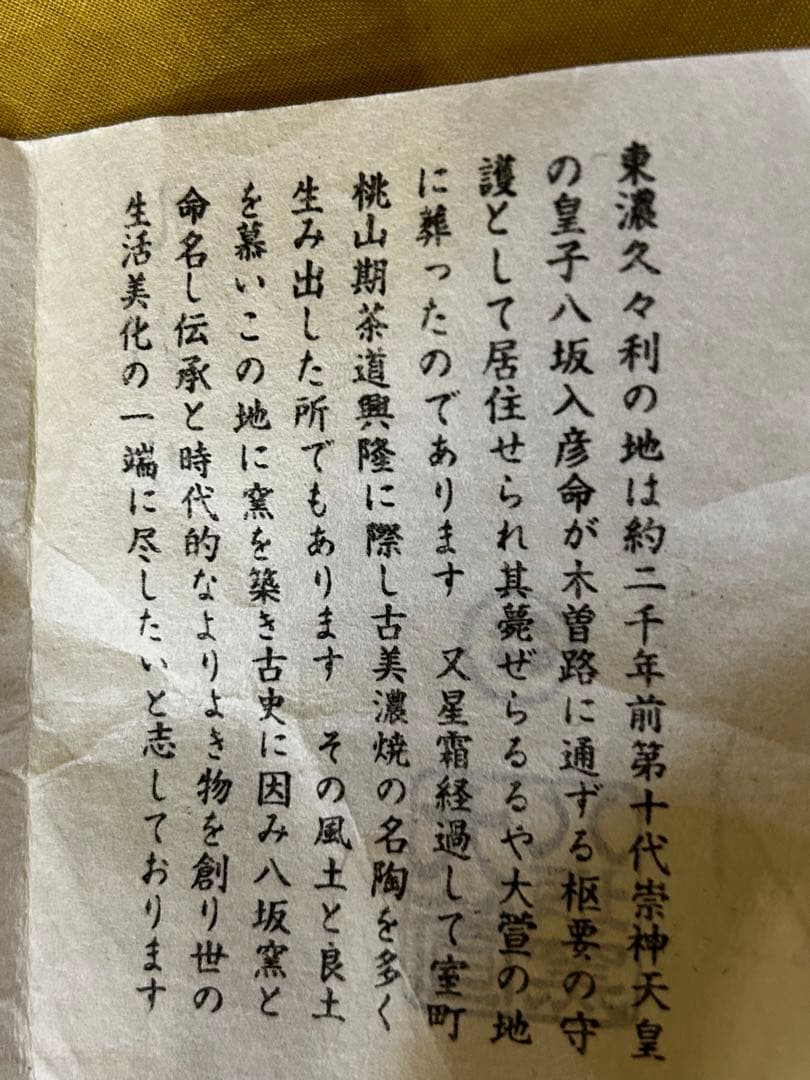 東濃久々利の地は約二千年前第十代崇神天皇
の皇子八坂入彦命が木曽路に通ずる枢要の守
護として居住せられ其薨ぜらるるや大萱の地
に葬ったのであります 又星霜経過して室町
桃山期茶道興隆に際し古美濃焼の名陶を多く
生み出した所でもあります その風土と良土
を慕いこの地に窯を築き古史に因み八坂窯と
命名し伝承と時代的なよりよき物を創り世の
生活美化の一端に尽したいと志しております